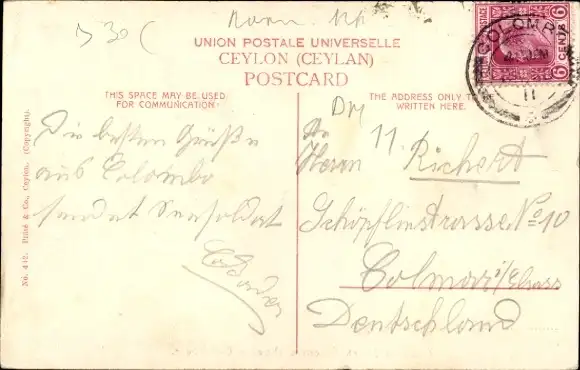 UNION POSTALE UNIVERSELLE
CEYLON (CEYLAN)
POSTCARD
THIS SPACE MAY BE USED
FOR COMMUNICATION.
THE ADDRESS ONLY TO
WRITTEN HERE.
POSTAGE
6 CENTS 6
COLOMBO
11
No. 442. Plâté & Co., Ceylon. (Copyright).
Die besten Grüße
aus Colombo
sendet Seesoldat
An
Herrn H. Richert
Schöpflinstrasse No 10
Colmar i/Elsass
Deutschland